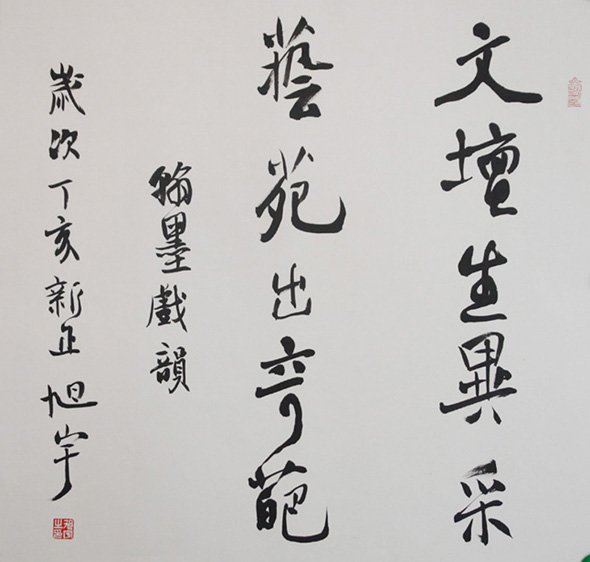 文壇生異采
藝苑出奇葩
翰墨戲韻
歲次丁亥新正 旭宇